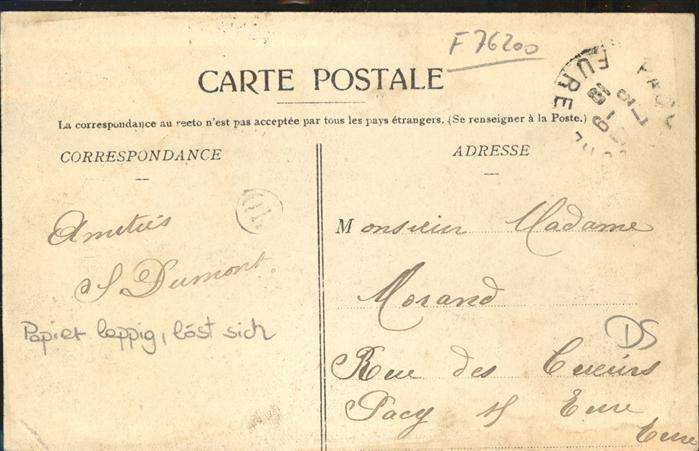 F 76200
CARTE POSTALE
La correspondance au recto n'est pas acceptée par tous les pays étrangers. (Se renseigner à la Poste.)
CORRESPONDANCE
Amitiés
S Dumont
Papier lappig, löst sich
ADRESSE
Monsieur Madame
Morand
DS
Rue des
Pacy s/ Eure
Eure
EURE